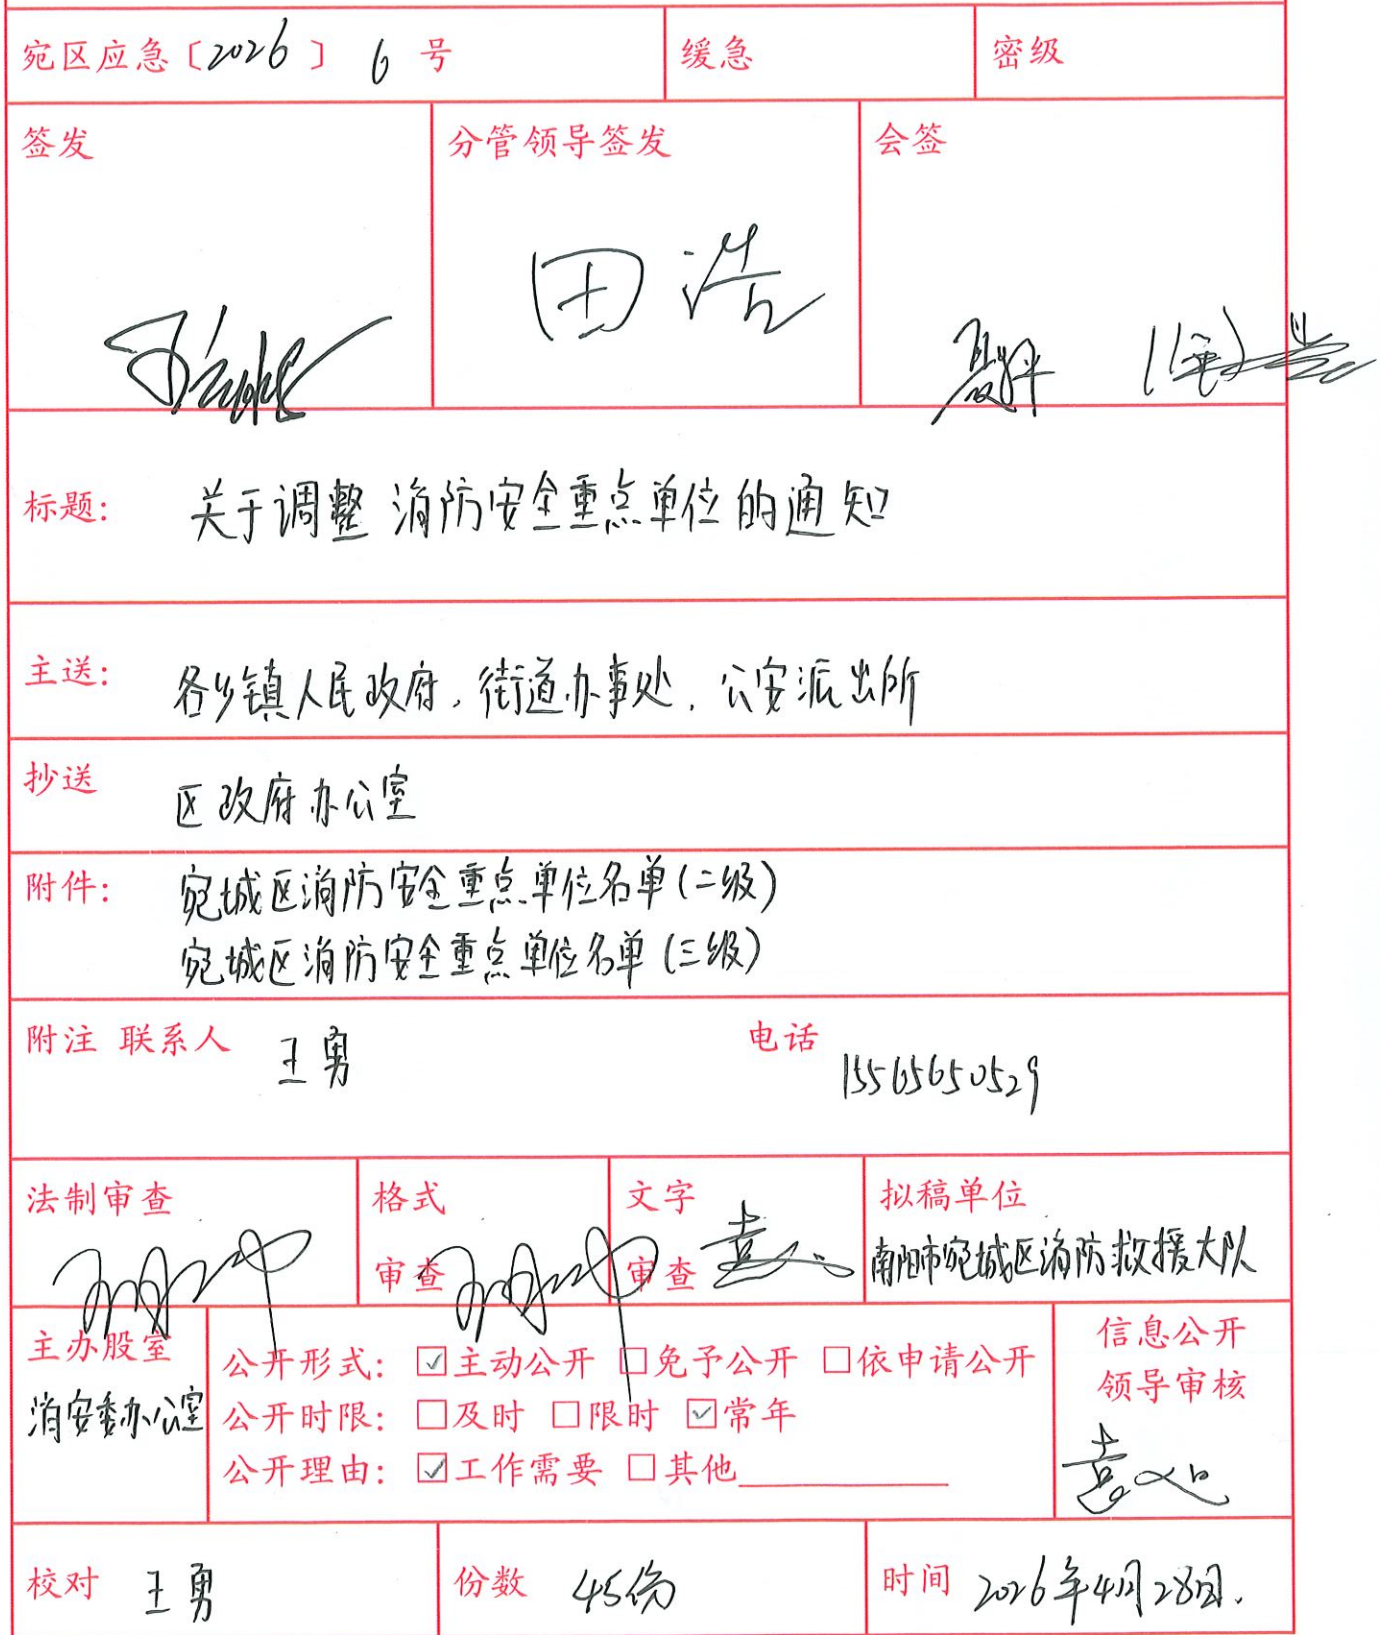 宛区应急〔2026〕 6 号 缓急 密级
签发 分管领导签发 会签
田浩
标题: 关于调整消防安全重点单位的通知
主送: 各乡镇人民政府，街道办事处，公安派出所
抄送 区政府办公室
附件: 宛城区消防安全重点单位名单(二级)
宛城区消防安全重点单位名单(三级)
附注 联系人 王勇 电话 15565650529
法制审查 格式审查 文字审查 拟稿单位
南阳市宛城区消防救援大队
主办股室 消安委办公室
公开形式: ☑主动公开 □免予公开 □依申请公开
公开时限: □及时 □限时 ☑常年
公开理由: ☑工作需要 □其他
信息公开
领导审核
校对 王勇 份数 45份 时间 2026年4月28日.